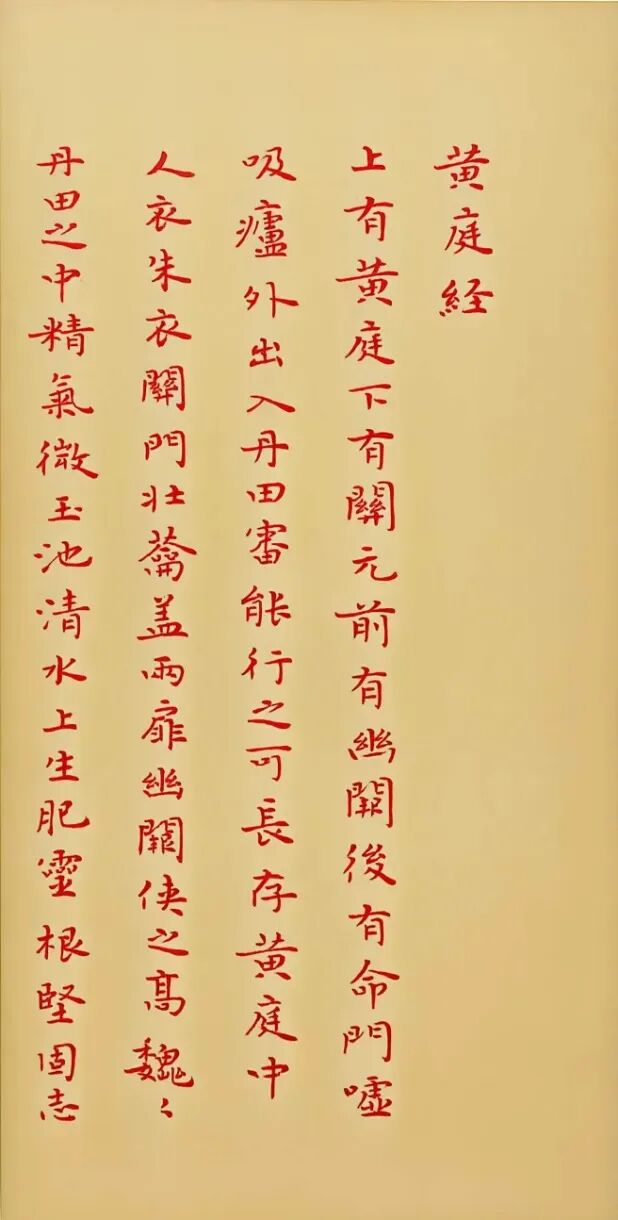 黄庭経
上有黄庭下有關元前有幽闕後有命門噓
吸廬外出入丹田審能行之可長存黄庭中
人衣朱衣關門壮蘥盖兩扉幽闕俠之高魏〻
丹田之中精氣微玉池清水上生肥靈根堅固志